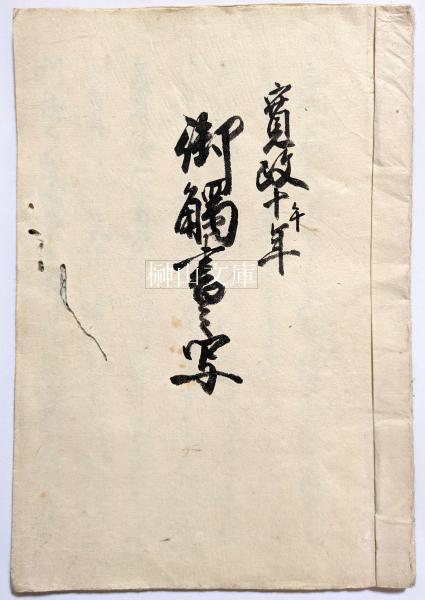 寛政十午年
御觸書之写
榊山文庫